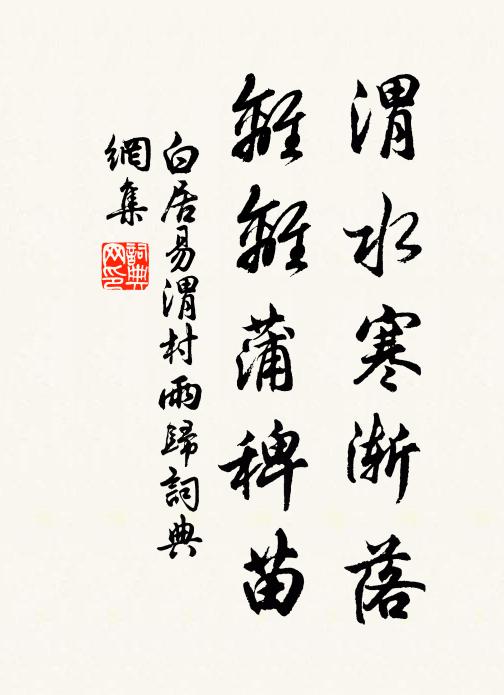 渭水寒渐落
離離蒲稗苗
白居易渭村雨歸詞典
網集
詞典網印